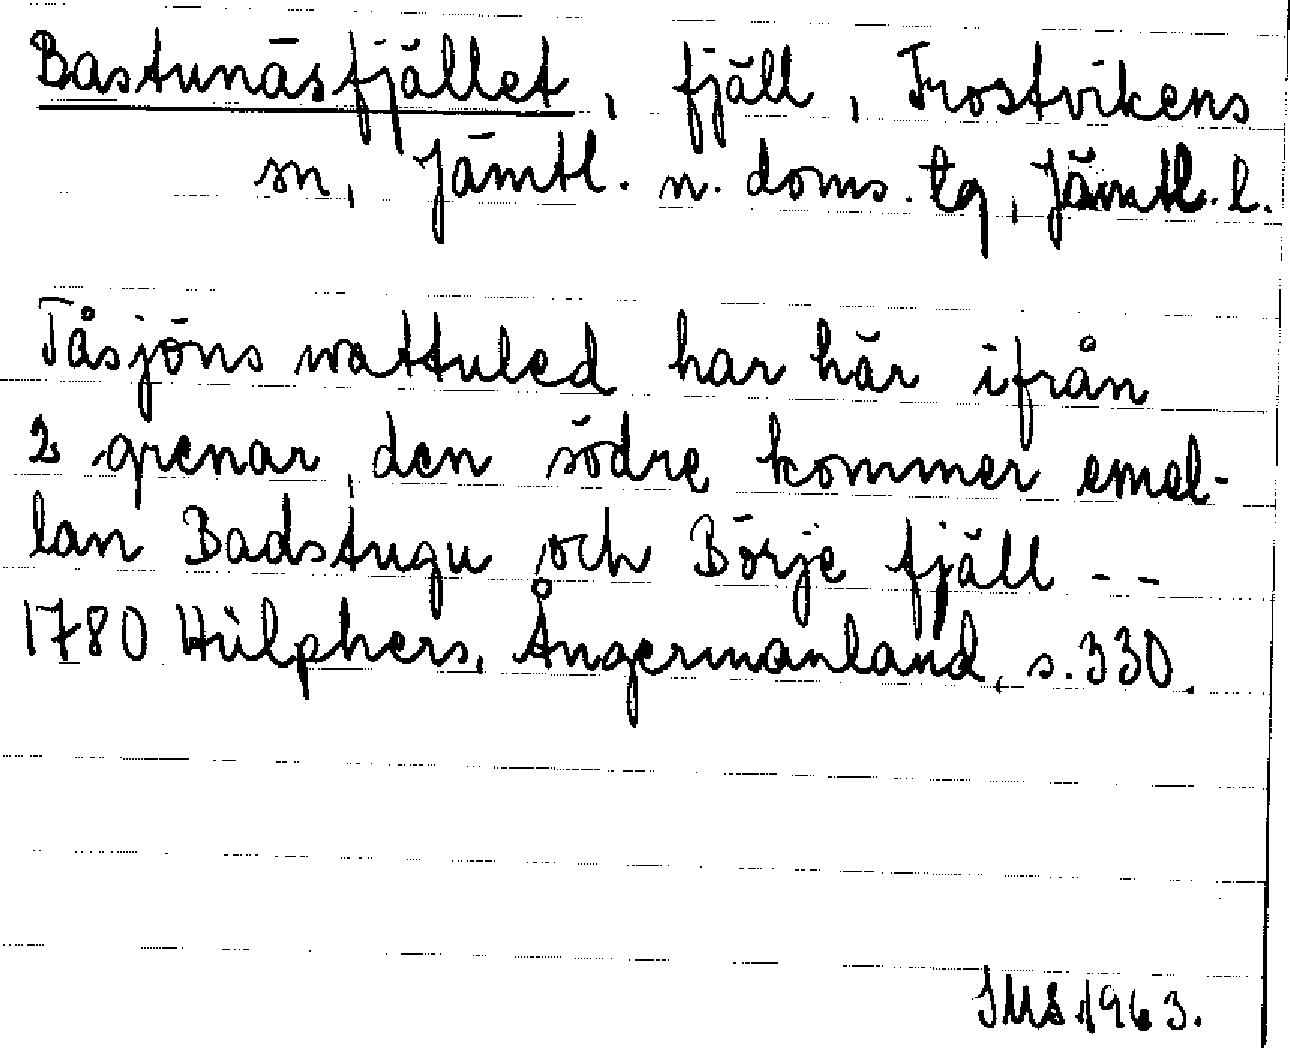 Bastunäsfjället, fjäll, Frostvikens
sn, Jämtl. n. doms. tg, Jämtl. l.
Tåsjöns wattuled har här ifrån
2 grenar, den södre kommer emel-
lan Badstugu och Börje fjäll - -
1780 Hülphers, Ångermanland, s. 330.
IMS 1963.